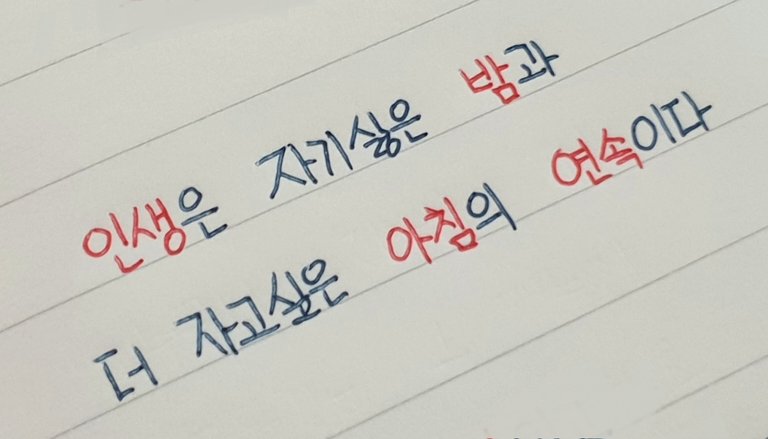 인생은 자기싫은 밤과
더 자고싶은 아침의 연속이다